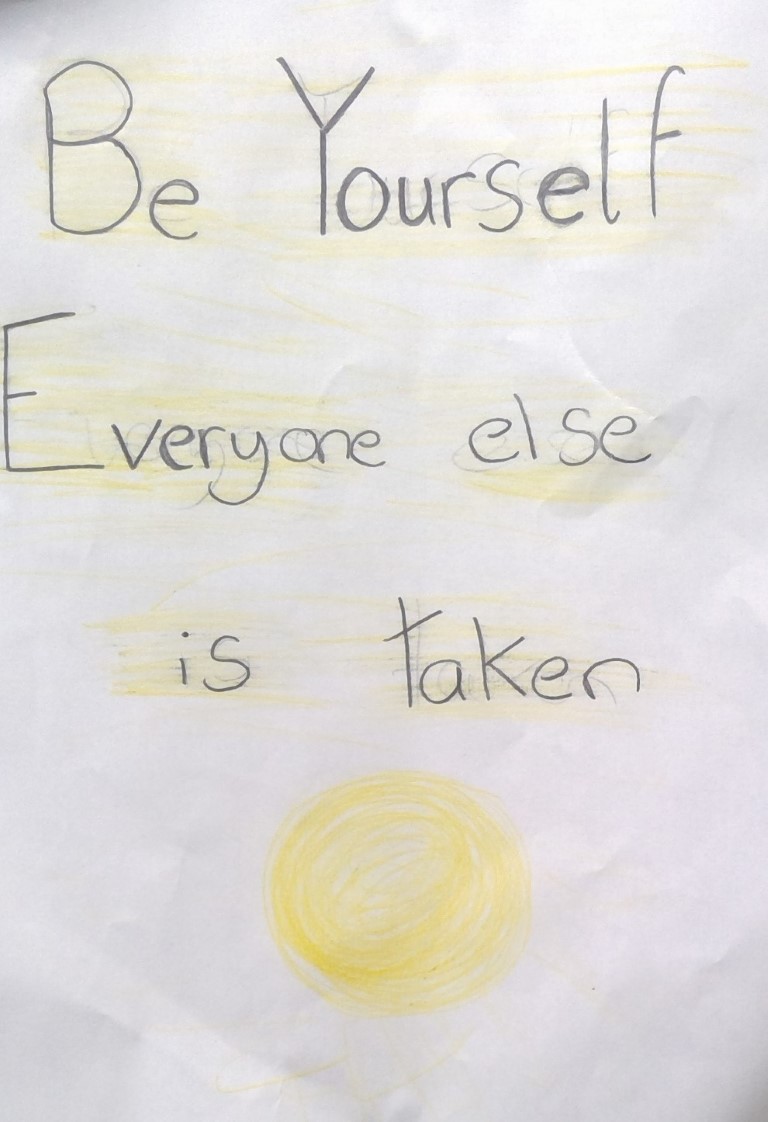 Be Yourself
Everyone else
is taken